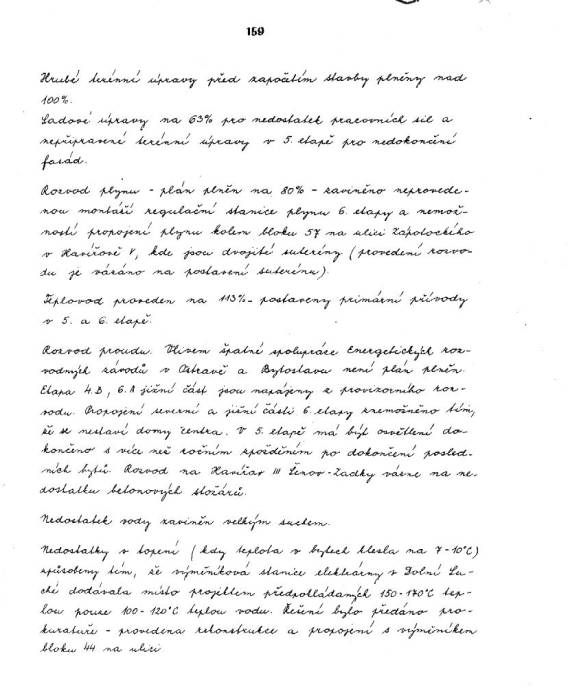 159
Hrubé terénní úpravy před započetím stavby plněny nad
100%.
Sadové úpravy na 63% pro nedostatek pracovních sil a
nepřipravené terénní úpravy v 5. etapě pro nedokončení
fasád.
Rozvod plynu - plán plněn na 80% - zaviněno neprovede-
nou montáží regulační stanice plynu 6. etapy a nemož-
ností propojení plynu kolem bloku 57 na ulici Zápotockého
v Havířově V, kde jsou dvojité suterény (provedení rozvo-
du je vázáno na postavení suterénu).
Teplovod proveden na 113% - postaveny primární přívody
v 5. a 6. etapě.
Rozvod proudu. Vlivem špatné spolupráce Energetických roz-
vodných závodů v Ostravě a Bytostavu není plán plněn.
Etapa 4.B, 6.A jižní část jsou napájeny z provizorního roz-
vodu. Propojení severní a jižní části 6. etapy znemožněno tím,
že se nestaví domy centra. V 5. etapě má být osvětlení do-
končeno s více než ročním zpožděním po dokončení posled-
ních bytů. Rozvod na Havířov III Šenov-Zadky vázne na ne-
dostatku betonových stožárů.
Nedostatek vody zaviněn velkým suchem.
Nedostatky v topení (kdy teplota v bytech klesla na 7-10°C)
způsobeny tím, že výměníková stanice elektrárny v Dolní Su-
ché dodávala místo projektem předpokládaných 150-170°C tep-
lou pouze 100-120°C teplou vodu. Řešení bylo předáno pro-
kuratuře - provedena rekonstrukce a propojení s výměníkem
bloku 44 na ulici